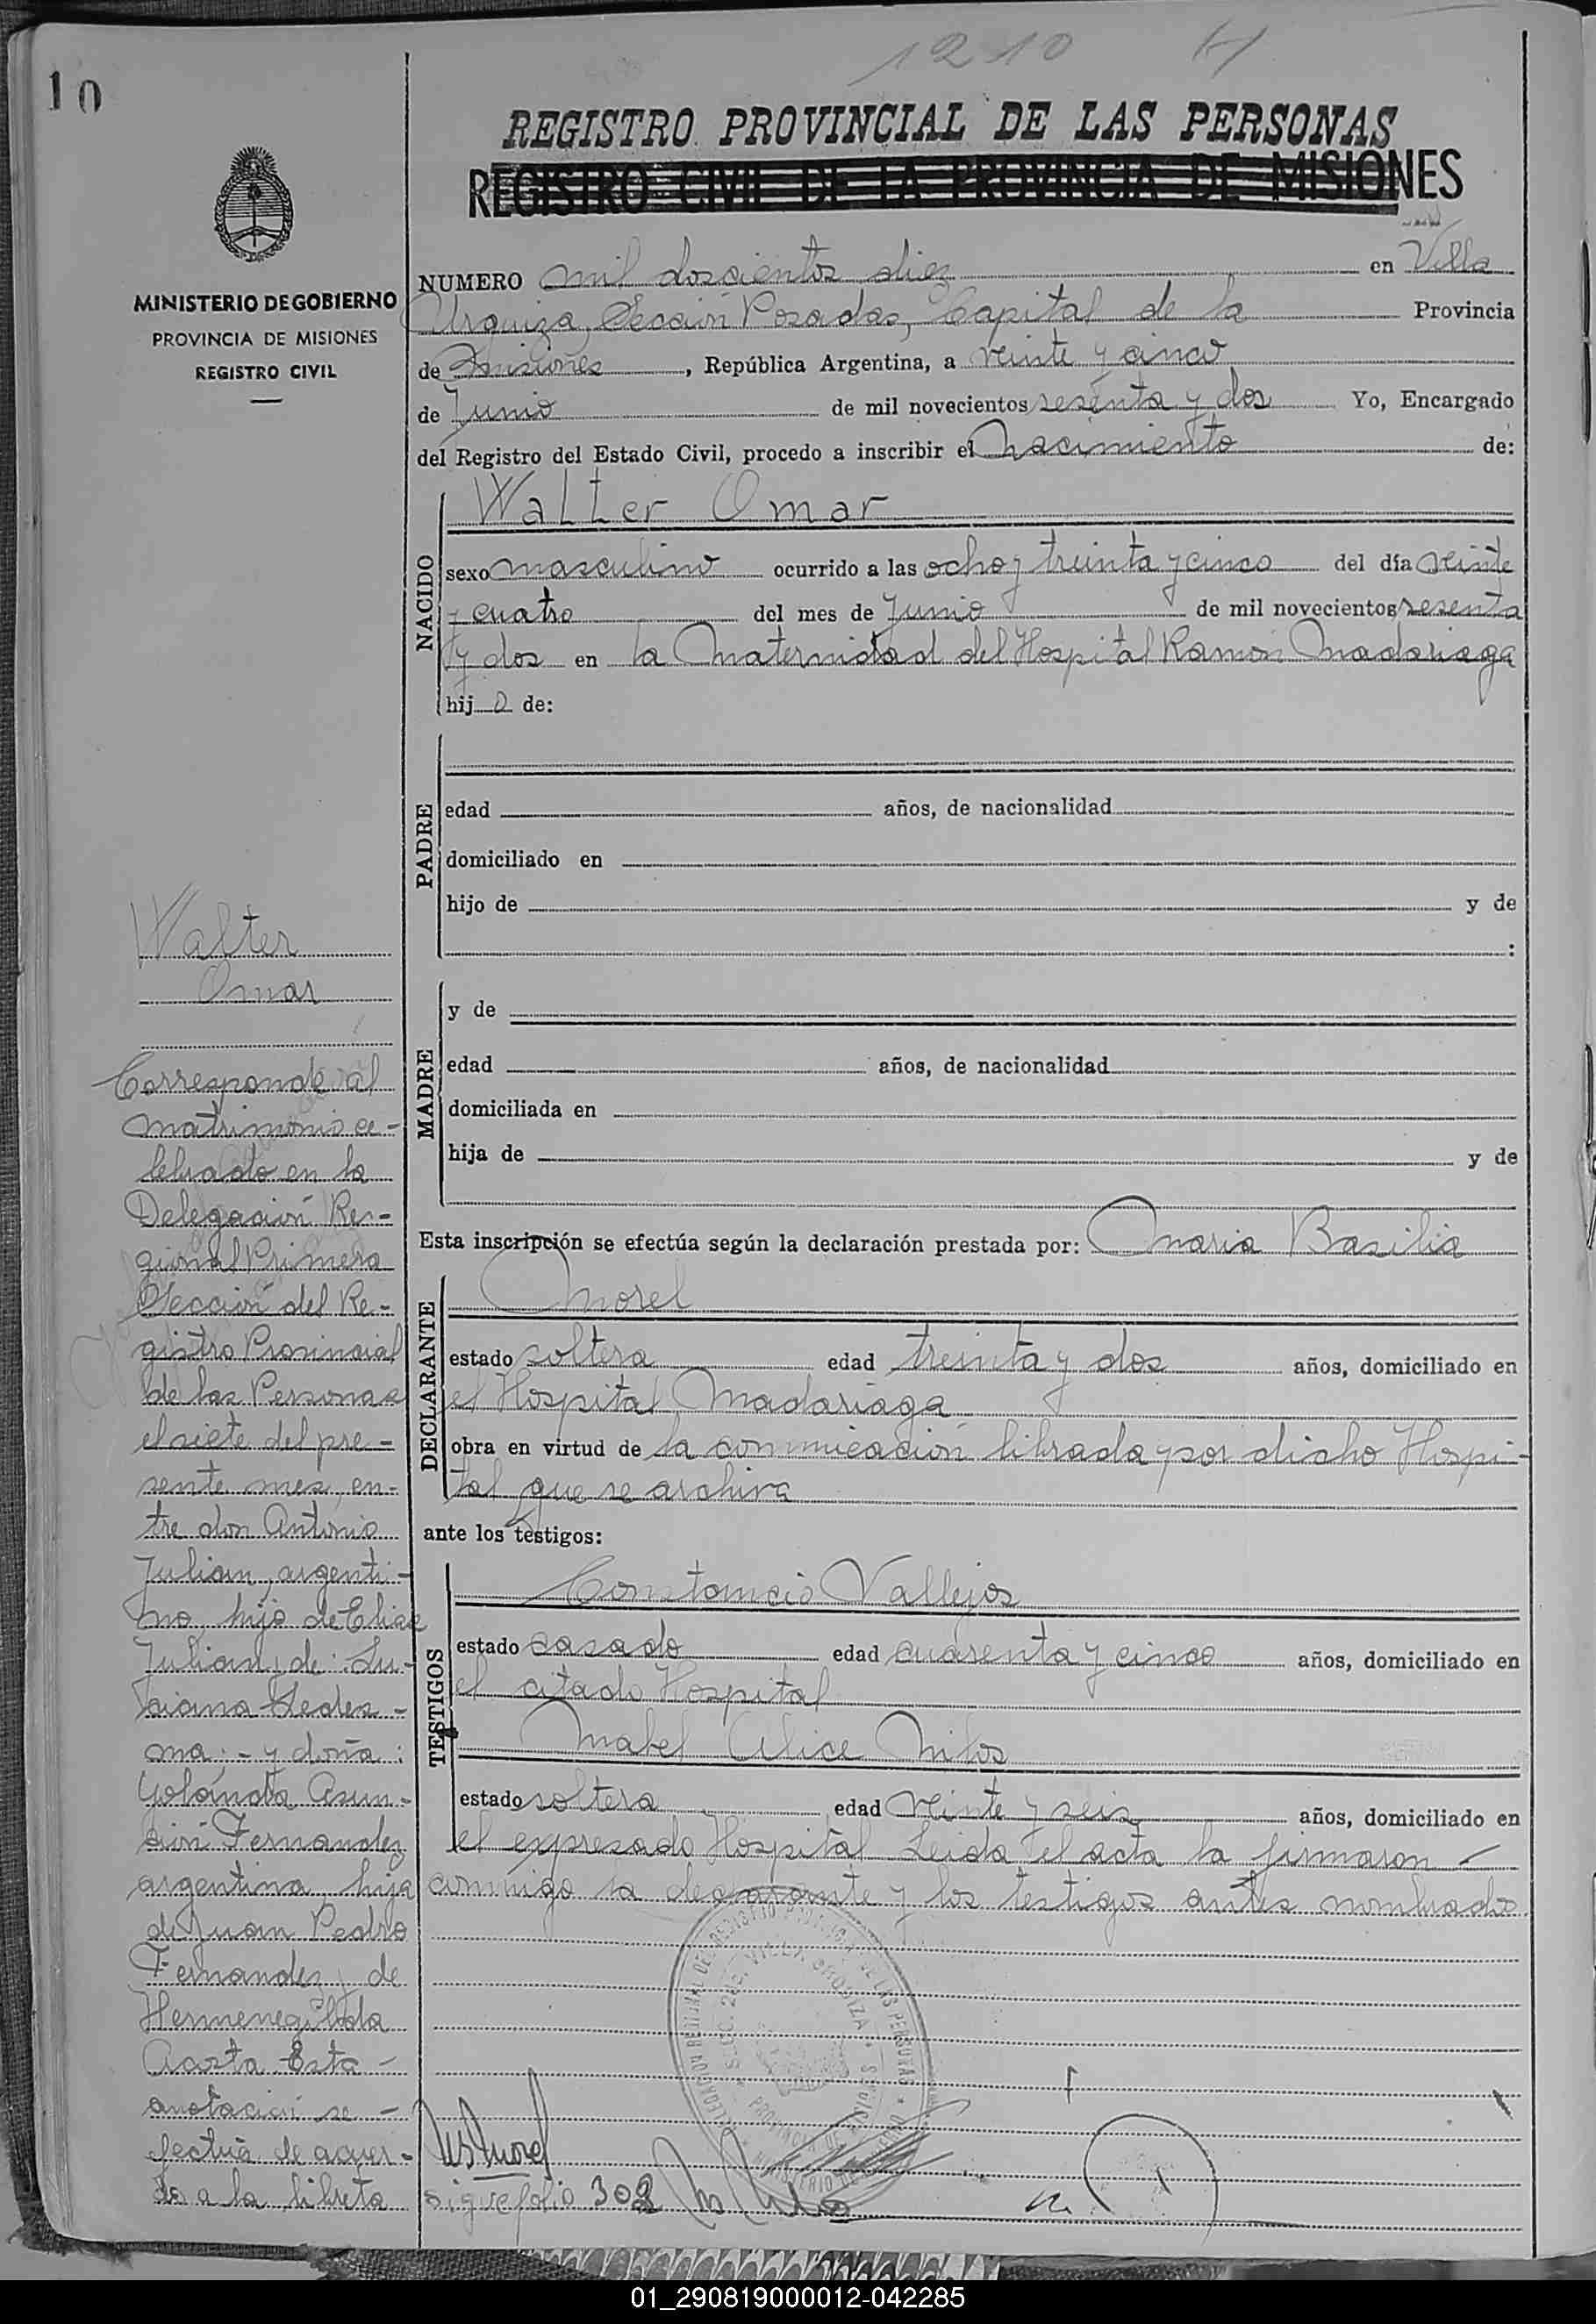 10
1210
REGISTRO PROVINCIAL DE LAS PERSONAS
REGISTRO CIVIL DE LA PROVINCIA DE MISIONES
MINISTERIO DE GOBIERNO
PROVINCIA DE MISIONES
REGISTRO CIVIL
NUMERO mil doscientos diez en Villa
Urquiza, Sección Posadas, Capital de la Provincia
de Misiones, República Argentina, a veinte y cinco
de Junio de mil novecientos sesenta y dos Yo, Encargado
del Registro del Estado Civil, procedo a inscribir el Nacimiento de:
NACIDO
Walter Omar
sexo masculino ocurrido a las ocho y treinta y cinco del día veinte
y cuatro del mes de Junio de mil novecientos sesenta
y dos en la Maternidad del Hospital Ramón Madariaga
hijo de:
PADRE
edad años, de nacionalidad
domiciliado en
hijo de y de
:
MADRE
y de
edad años, de nacionalidad
domiciliada en
hija de y de
Esta inscripción se efectúa según la declaración prestada por: Maria Basilia
DECLARANTE
Morel
estado soltera edad treinta y dos años, domiciliado en
el Hospital Madariaga
obra en virtud de la comunicación librada por dicho Hospi-
tal que se archiva
ante los testigos:
TESTIGOS
Constancio Vallejos
estado casado edad cuarenta y cinco años, domiciliado en
el citado Hospital
Mabel Alice
estado soltera edad veinte y seis años, domiciliado en
el expresado Hospital Leida el acta la firmaron -
conmigo la declarante y los testigos antes nombrados
sigue folio 302
Walter
Omar
Corresponde al
matrimonio ce-
lebrado en la
Delegación Re-
gional Primera
Sección del Re-
gistro Provincial
de las Personas
el siete del pre-
sente mes, en-
tre don Antonio
Julian, argenti-
no, hijo de Elias
Julian, de Lu-
ciana Ledes-
ma; - y doña:
Yolanda Asun-
ción Fernandez
argentina, hija
de Juan Pedro
Fernandez y de
Hermenegilda
Acosta Esta -
anotación se -
efectúa de acuer-
do a la libreta
01_290819000012-042285